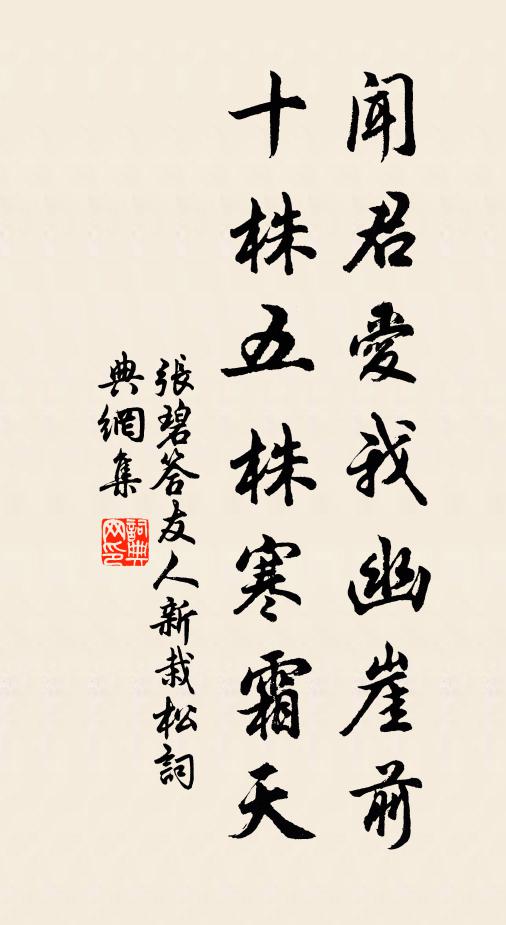 闻君爱我幽崖前
十株五株寒霜天
張碧答友人新栽松詞
典網集
詞典
网印